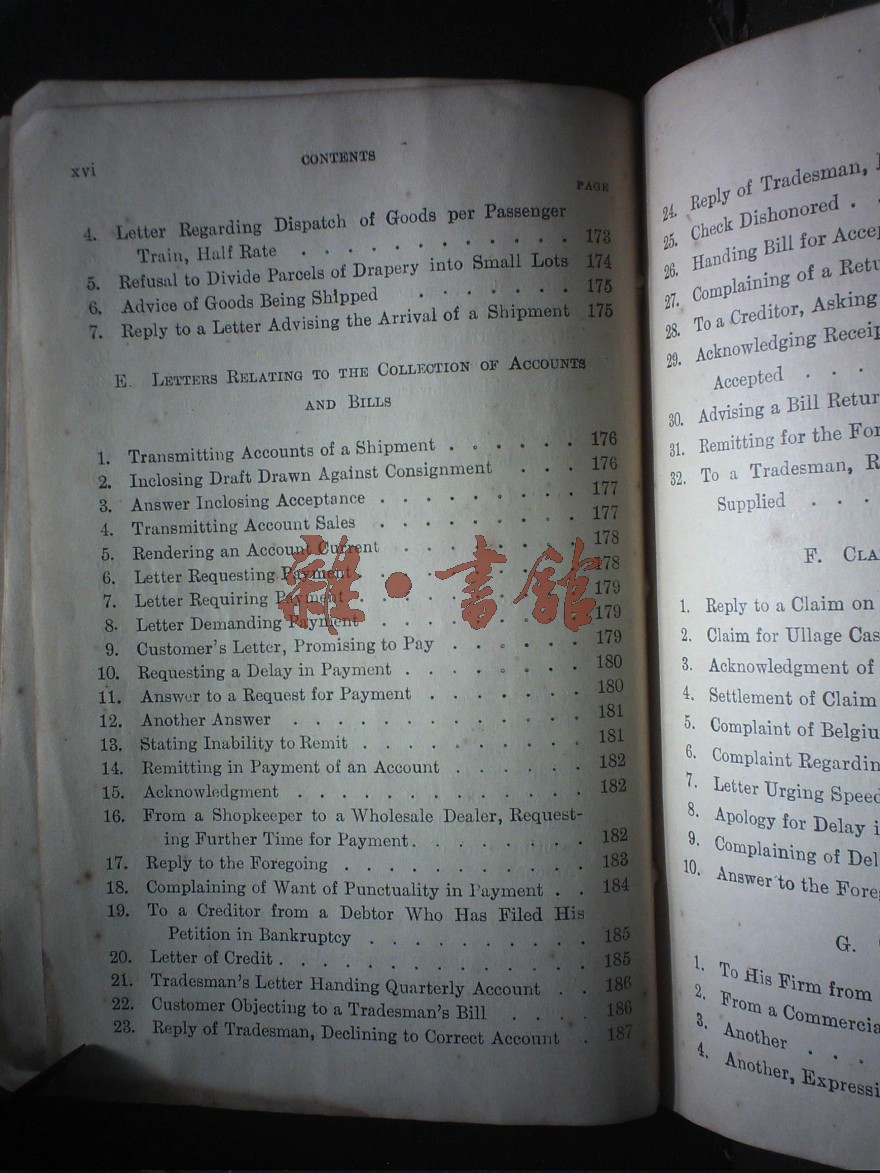 xvi
CONTENTS
PAGE
4. Letter Regarding Dispatch of Goods per Passenger
Train, Half Rate . . . . . . . . . . . . 173
5. Refusal to Divide Parcels of Drapery into Small Lots 174
6. Advice of Goods Being Shipped . . . . . . . 175
7. Reply to a Letter Advising the Arrival of a Shipment 175
E. LETTERS RELATING TO THE COLLECTION OF ACCOUNTS
AND BILLS
1. Transmitting Accounts of a Shipment . . . . . . 176
2. Inclosing Draft Drawn Against Consignment . . . 176
3. Answer Inclosing Acceptance . . . . . . . . . 177
4. Transmitting Account Sales . . . . . . . . . 177
5. Rendering an Account Current . . . . . . . . 178
6. Letter Requesting Payment . . . . . . . . . 178
7. Letter Requiring Payment . . . . . . . . . . 179
8. Letter Demanding Payment . . . . . . . . . 179
9. Customer's Letter, Promising to Pay . . . . . . 179
10. Requesting a Delay in Payment . . . . . . . . 180
11. Answer to a Request for Payment . . . . . . . 180
12. Another Answer . . . . . . . . . . . . . 181
13. Stating Inability to Remit . . . . . . . . . . 181
14. Remitting in Payment of an Account . . . . . . 182
15. Acknowledgment . . . . . . . . . . . . . 182
16. From a Shopkeeper to a Wholesale Dealer, Request-
ing Further Time for Payment . . . . . . . . 182
17. Reply to the Foregoing . . . . . . . . . . . 183
18. Complaining of Want of Punctuality in Payment . . 184
19. To a Creditor from a Debtor Who Has Filed His
Petition in Bankruptcy . . . . . . . . . . 185
20. Letter of Credit . . . . . . . . . . . . . . 185
21. Tradesman's Letter Handing Quarterly Account . . 186
22. Customer Objecting to a Tradesman's Bill . . . . 186
23. Reply of Tradesman, Declining to Correct Account . 187
雜·書館
24. Reply of Tradesman,
25. Check Dishonored . .
26. Handing Bill for Accep
27. Complaining of a Retu
28. To a Creditor, Asking
29. Acknowledging Receip
Accepted . . .
30. Advising a Bill Retur
31. Remitting for the For
32. To a Tradesman, R
Supplied . . .
F. CLA
1. Reply to a Claim on
2. Claim for Ullage Cas
3. Acknowledgment of
4. Settlement of Claim
5. Complaint of Belgiu
6. Complaint Regardin
7. Letter Urging Speed
8. Apology for Delay i
9. Complaining of Del
10. Answer to the Fore
G.
1. To His Firm from
2. From a Commercia
3. Another . . .
4. Another, Expressi